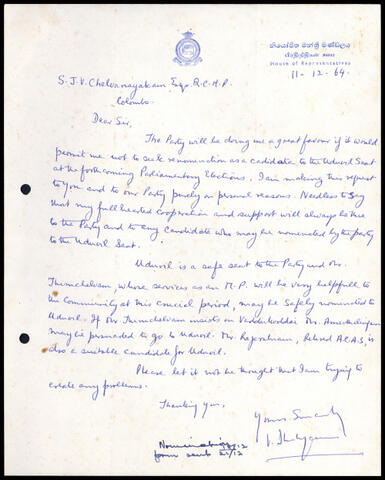 නියෝජිත මන්ත්‍රී මණ්ඩලය
பிரதிநிதிகள் சபை
House of Representatives
11-12-64.
S. J. V. Chelvanayakam Esqr. Q.C. M.P.
Colombo.
Dear Sir,
The Party will be doing me a great favour if it would
permit me not to seek renomination as a candidate to the Uduvil Seat
at the forthcoming Parliamentary Elections. I am making this request
to you and to our Party purely on personal reasons. Needless to say
that my full hearted cooperation and support will always be there
to the Party and to any candidate who may be nominated by the party
to the Uduvil Seat.
Uduvil is a safe seat to the Party and Mr.
Thiruchelvam, whose services as an M.P. will be very helpfull to
the Community at this crucial period, may be safely nominated to
Uduvil. If Mr. Thiruchelvam insists on Vaddukoddai Mr. Amirthalingam
may be persuaded to go to Uduvil. Mr. Rajendram, Retired A.C.A.S, is
also a suitable candidate for Uduvil.
Please let it not be thought that I am trying to
create any problems.
Thanking you,
Yours Sincerely
Nomination
form sent 21/12